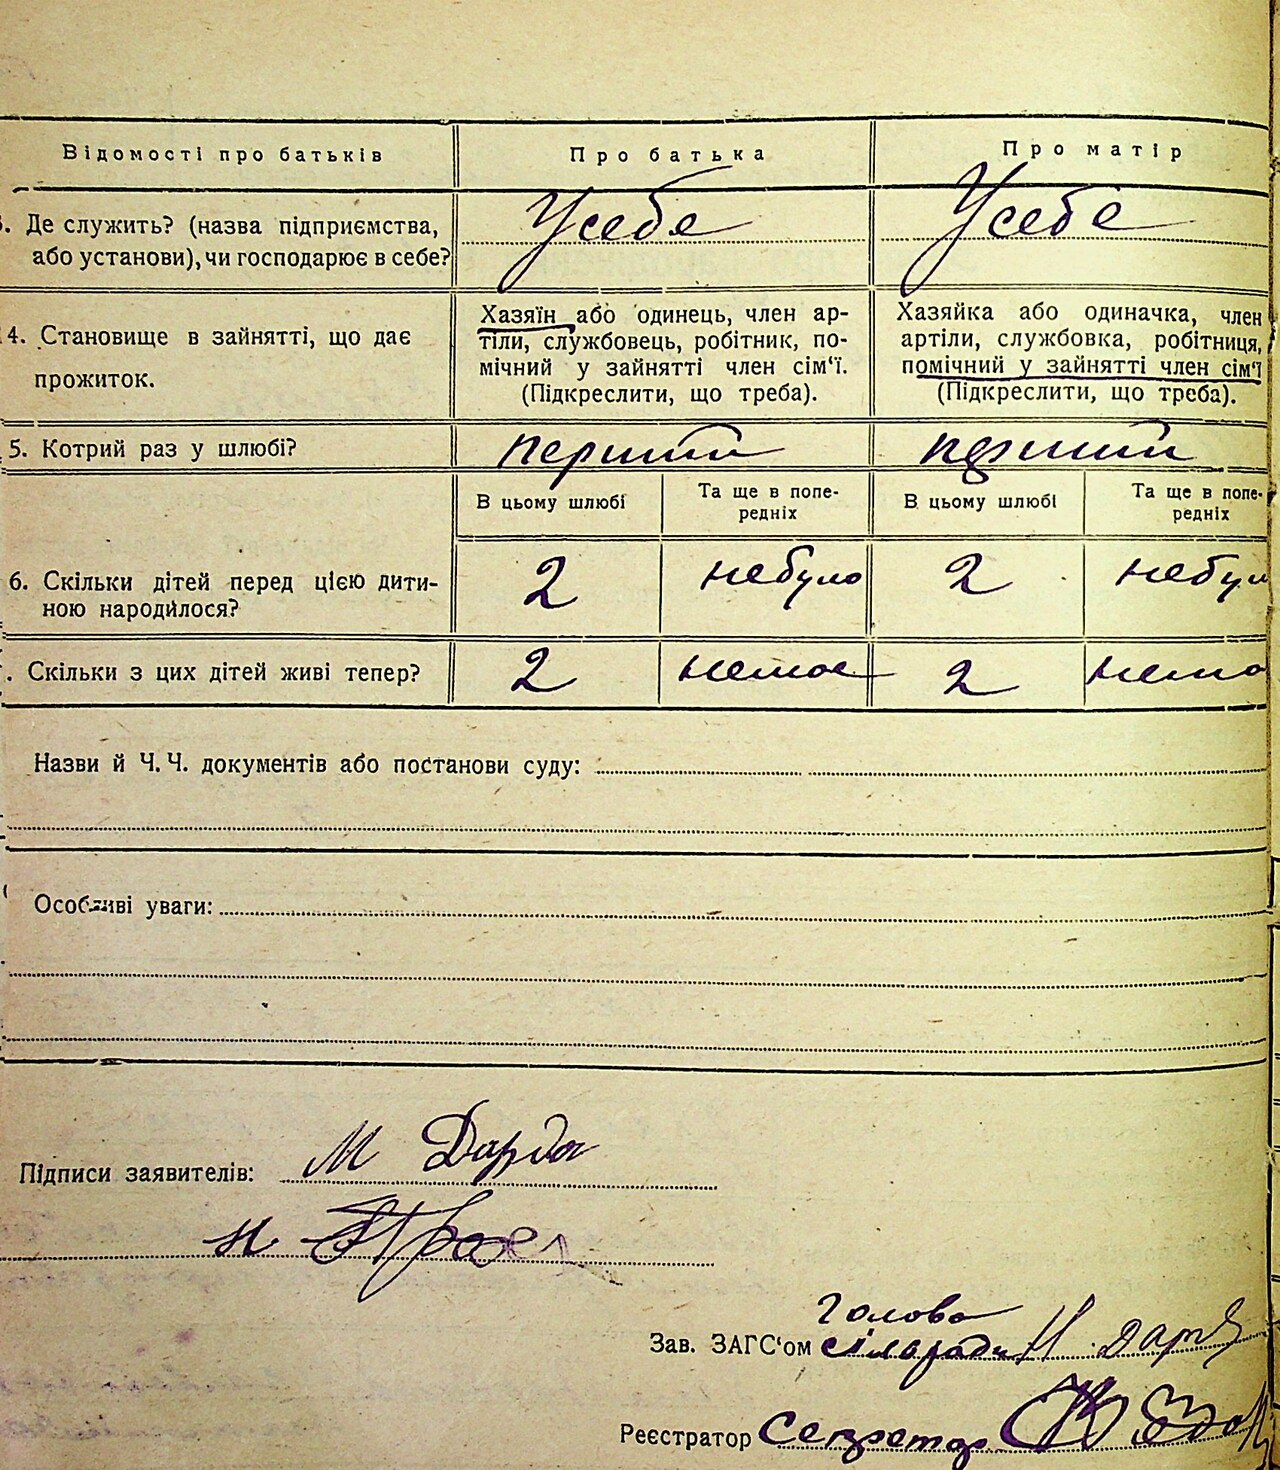 Відомості про батьків
Про батька
Про матір
3. Де служить? (назва підприємства,
або установи), чи господарює в себе?
Усебе
Усебе
14. Становище в зайнятті, що дає
прожиток.
Хазяїн або одинець, член ар-
тіли, службовець, робітник, по-
мічний у зайнятті член сім'ї.
(Підкреслити, що треба).
Хазяйка або одиначка, член
артіли, службовка, робітниця,
помічний у зайнятті член сім'ї
(Підкреслити, що треба).
5. Котрий раз у шлюбі?
перший
перший
В цьому шлюбі
Та ще в попе-
редніх
В цьому шлюбі
Та ще в попе-
редніх
6. Скільки дітей перед цією дити-
ною народилося?
2
небуло
2
небул
. Скільки з цих дітей живі тепер?
2
немає
2
нема
Назви й Ч. Ч. документів або постанови суду:
Особливі уваги:
Підписи заявителів: М Дарда
Голова
Зав. ЗАГС'ом сілради Н. Дарда
Реєстратор Секретар